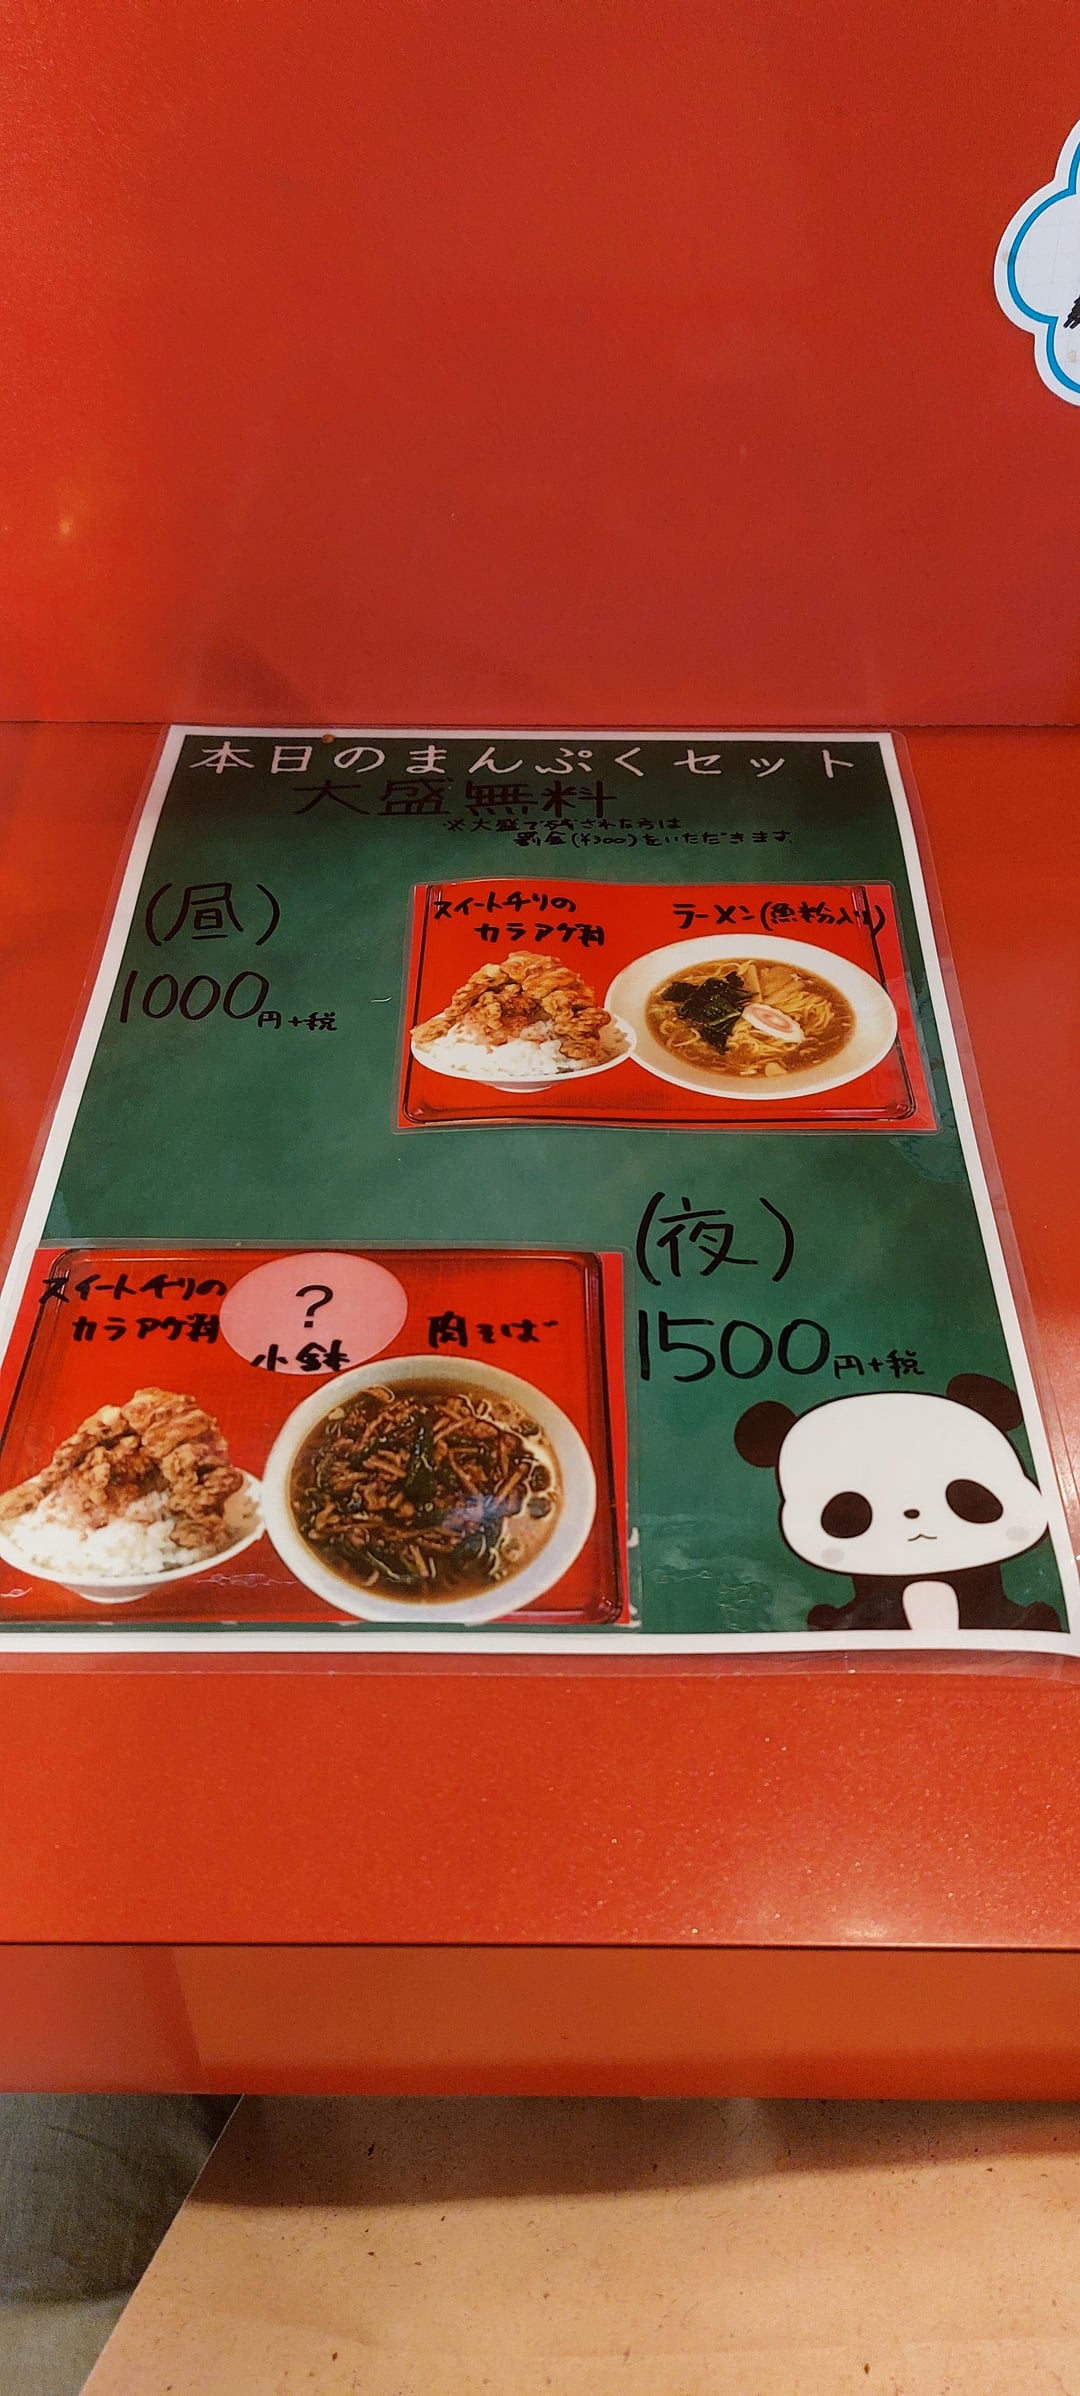 本日のまんぷくセット
大盛無料
※大盛で残された方は
罰金(¥300)をいただきます。
(昼)
1000円+税
スイートチリの
カラアゲ丼
ラーメン(魚粉入り)
(夜)
1500円+税
スイートチリの
カラアゲ丼
?
小鉢
肉そば